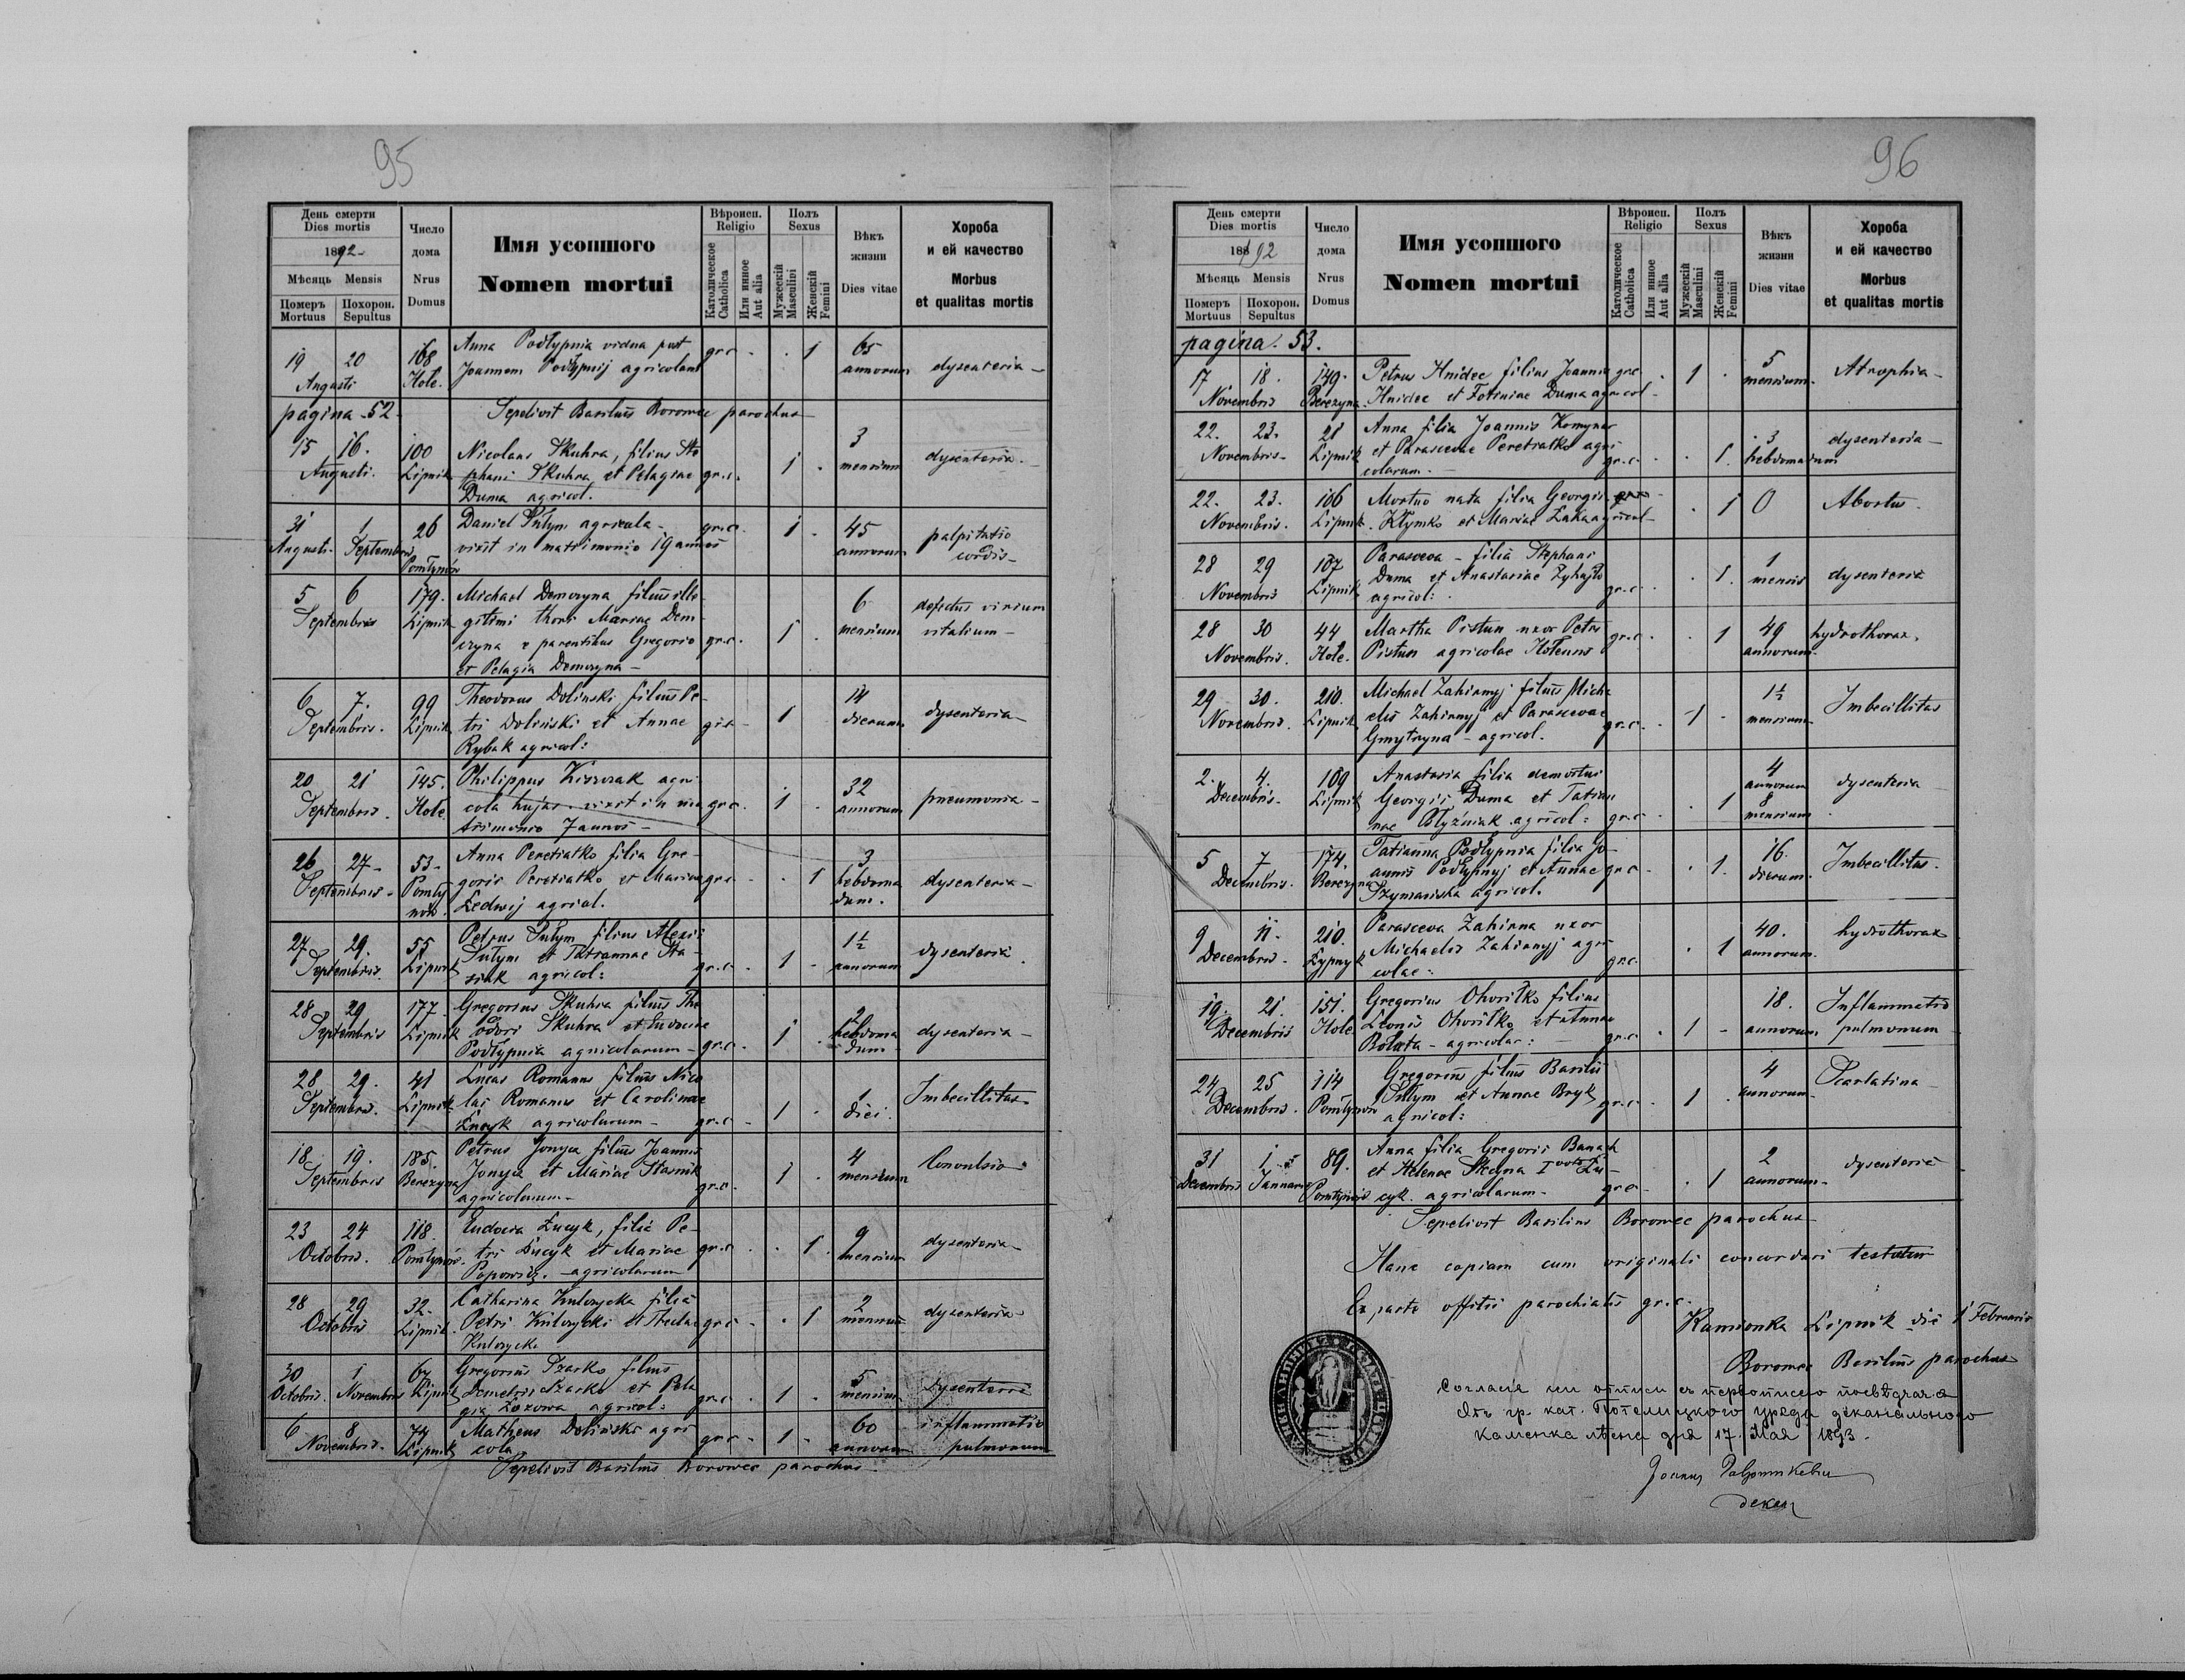 95
День смерти
Dies mortis
1892
Мѣсяць Mensis
Померъ Mortuus
Похорон. Sepultus
Число дома
Nrus Domus
Имя усопшого
Nomen mortui
Вѣроисп.
Religio
Католическое Catholica
Или инное Aut alia
Полъ
Sexus
Мужескій Masculini
Женскій Femini
Вѣкъ жизни
Dies vitae
Хороба
и ей качество
Morbus
et qualitas mortis
19 20 168 Anna Podłypnia vidua post gr.c. 1 65
Augusti Hole. Joannem Podłypnij agricolam annorum dysenteria
pagina 52. Sepelivit Basilius Borowec parochus
15 16. 100 Nicolaus Skuhra, filius Ste 3
Augusti. Lipnik phani Skuhra et Pelagiae gr.c. 1 mensium dysenteria
Duma agricol.
31 1 26 Daniel Sułym agricola gr.c. 1 45 palpitatio
Augusti Septembris Pomłynów vixit in matrimonio 19 annos annorum cordis
5 6 179. Michael Demczyna filius ille 6 defectus virium
Septembris Lipnik gitimi thori Mariae Dem mensium vitalium
czyna e parentibus Gregorio gr.c. 1
et Pelagia Demczyna
6 7. 99 Theodorus Doliński filius Pe 14
Septembris. Lipnik tri Doliński et Annae gr.c. 1 dierum dysenteria
Rybak agricol:
20 21 145. Philippus Kiszczak agri 32
Septembris. Hole cola hujas vixit in ma gr.c. 1 annorum pneumonia
trimonio 7 annos
26 27 53 Anna Peretiatko filia Gre 3
Septembris Pomły goris Peretiatko et Mariae gr.c. 1 hebdoma dysenteria
nów. Ledwij agricol. dum.
27 29. 55 Petrus Sułym filius Alexii 1½
Septembris Lipnik Sułym et Tatiannae Sta gr.c. 1 annorum dysenteria
siuk agricol:
28 29 177 Gregorius Skuhra filius The 2
Septembris Lipnik odori Skuhra et Eudociae 1 hebdoma dysenteria
Podłypnia agricolarum gr.c. dum
28 29. 41 Lucas Romanus filius Nico 1
Septembris. Lipnik lai Romanus et Carolinae 1 diei. Imbecillitas
Łucyk agricolarum gr.c.
18 19. 185. Petrus Jonyca filius Joannis 4
Septembris Berezyna Jonyca et Mariae Stasiuk 1 mensium Convulsio
agricolarum gr.c.
23 24 118. Eudocia Łucyk, filia Pe 9
Octobris. Pomłynów. tri Łucyk et Mariae gr.c. 1 mensium dysenteria
Popowicz. agricolarum
28 29 32. Catharina Kulczycka filia 2
Octobris Lipnik. Petri Kulczycki et Theclae gr.c. 1 mensium dysenteria
Kulczycki
30 1 67 Gregorius Szarko filius 5
Octobris. Novembris Lipnik Demetrii Szarko et Pela gr.c. 1 mensium dysenteria
gia Łozowa agricol:
6 8 74 Matheus Doliński agri gr.c. 1 60 inflammatio
Novembris. Lipnik cola annorum pulmonum
Sepelivit Basilius Borowec parochus
96
День смерти
Dies mortis
1892
Мѣсяць Mensis
Померъ Mortuus
Похорон. Sepultus
Число дома
Nrus Domus
Имя усопшого
Nomen mortui
Вѣроисп.
Religio
Католическое Catholica
Или инное Aut alia
Полъ
Sexus
Мужескій Masculini
Женскій Femini
Вѣкъ жизни
Dies vitae
Хороба
и ей качество
Morbus
et qualitas mortis
pagina. 53.
17 18. 149. Petrus Hnidec filius Joannis gr.c. 1 5 Atrophia
Novembris Berezyna. Hnidec et Fotiniae Duma agricol mensium
22. 23. 21 Anna filia Joannis Komynar 3 dysenteria
Novembris Lipnik et Parascevae Peretiatko agri 1. hebdomadum
colarum. gr.c.
22. 23. 106 Mortuo nata filia Georgii 1 0 Abortus
Novembris. Lipnik. Kłymko et Mariae Łaka agricol
28 29 107 Parasceva filia Stephani 1
Novembris Lipnik Duma et Anastasiae Zyhajło 1. mensis dysenteria
agricol: gr.c.
28 30 44 Martha Pistun uxor Petri gr.c. 1 49 hydrothorax.
Novembris. Hole. Pistun agricolae Holensis annorum
29 30. 210. Michael Zahirnyj filius Micha 1½ Imbecillitas
Novembris. Lipnik elis Zahirnyj et Parascevae gr.c. 1 mensium
Gmytryna agricol.
2. 4. 109 Anastasia filia demortui 4 dysenteria
Decembris. Lipnik Georgii Duma et Tatian annorum 8
nae Błyźniak agricol: gr.c. 1 mensium
5 7 174. Tatianna Podłypnia filia Jo 16. Imbecillitas
Decembris. Berezyna annis Podłypnyj et Annae gr.c. 1. dierum.
Szymańska agricol.
9 11. 210. Parasceva Zahirna uxor 40. hydrothorax
Decembris. Łypnyk Michaelis Zahirnyj agri 1 annorum.
colae: gr.c.
19. 21. 151. Gregorius Ohoriłko filius 18. Inflammatio
Decembris Hole Leonis Ohoriłko et Annae 1 annorum pulmonum
Bołota agricolar: gr.c.
24 25 114 Gregorius filius Basilii 4 Scarlatina
Decembris. Pomłynów Sułym et Annae Bryk gr.c. 1 annorum
agricol:
31 1. 89. Anna filia Gregorii Banach 2 dysenteria
Decembris Januarii Pomłynów et Helenae Skedyna I voto Łu annorum
cyk. agricolarum. gr.c. 1
Sepelivit Basilius Borowec parochus
Hanc copiam cum originali concordari testatur
Ex parte offitii parochialis gr.c.
Kamionka Lipnik die 1 Februarii
Borowec Basilius parochus
Согласіе сеи отписи съ первописею посвѣдчае
Отъ гр. кат. Потелицкого уряда деканального
Каменка лѣсна дня 17. Мая 1893.
декан